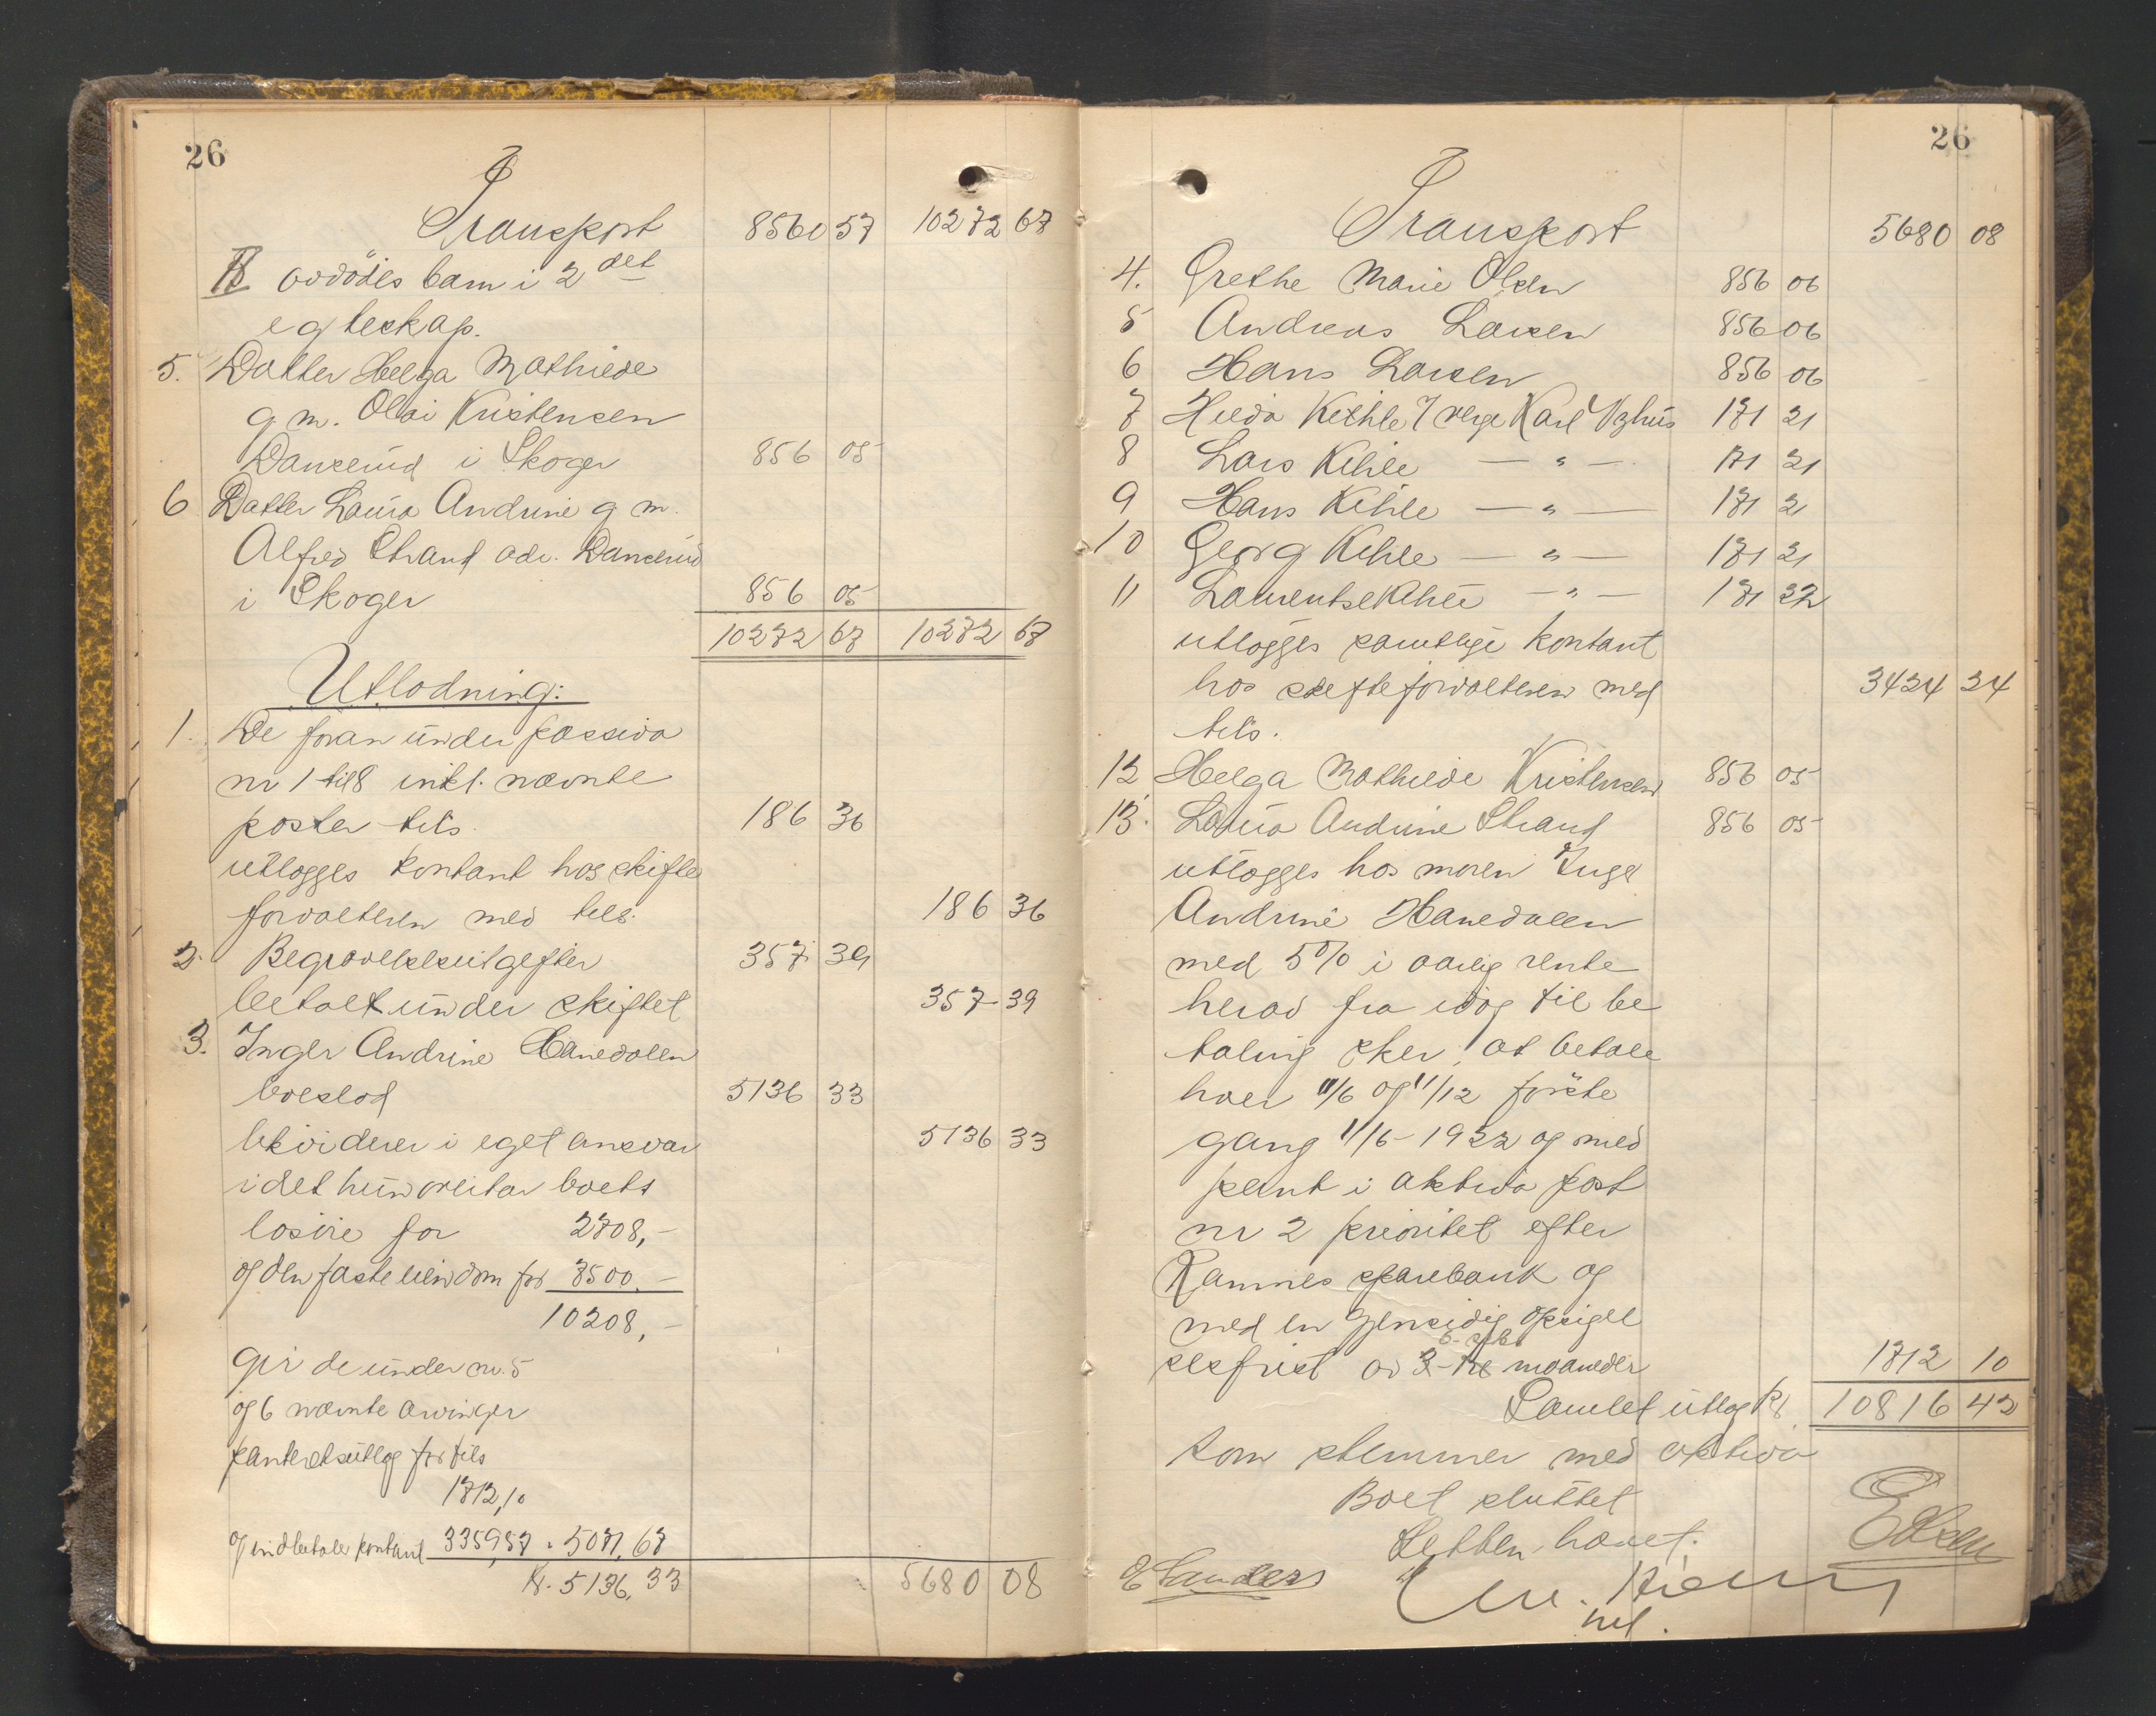 26
Transport 8560 57 10272 67
B avdødes barn i 2 det
egteskap.
5. Datter Helga Mathilde
g m. Olai Kristensen
Danserud i Skoger 856 05
6 Datter Laura Andrine g m.
Alfred Strand adr. Danserud
i Skoger 856 05
10272 67 10272 67
Utlodning:
1. De foran under passiva
nr 1 til 8 inkl. nævnte
poster tils. 186 36
utlægges kontant hos skifte
forvalteren med tils. 186 36
2. Begravelsesutgifter 357 39
betalt under skiftet 357 39
3. Inger Andrine Hanedalen
boeslod 5136 33
likviderer i eget ansvar 5136 33
idet hun overtar boets
løsøre for 2708,-
og den faste eiendom for 7500.-
10208,-
gir de under nr. 5
og 6 nævnte arvinger
panteretsutlæg for tils
1712,10
og indbetaler kontant 3359,57 = 5071,67
Kr. 5136,33
5680 08
26
Transport 5680 08
4. Grethe Marie Olsen 856 06
5 Andreas Larsen 856 06
6 Hans Larsen 856 06
7 Hilda Kihle / verge Karl 171 21
8 Lars Kihle — " — 171 21
9 Hans Kihle — " — 171 21
10 Georg Kihle — " — 171 21
11 Laurentse Kihle — " — 171 22
utlægges samtlige kontant
hos skifteforvalteren med 3424 24
tils.
12 Helga Mathilde Kristensen 856 05
13. Laura Andrine Strand 856 05
utlægges hos moren Inger
Andrine Hanedalen
med 5% i aarlig rente
herav fra idag til be
taling sker, at betale
hver 11/6 og 11/12 første
gang 11/6 - 1922 og med
pant i aktiva post
nr 2 prioritet efter
Ramnes sparebank og
med en gjensidig opsigel
6 - seks
sesfrist av 3 - tre maaneder 1712 10
Samlet utlæg Kr. 10816 42
som stemmer med aktiva
Boet sluttet
Retten hævet.